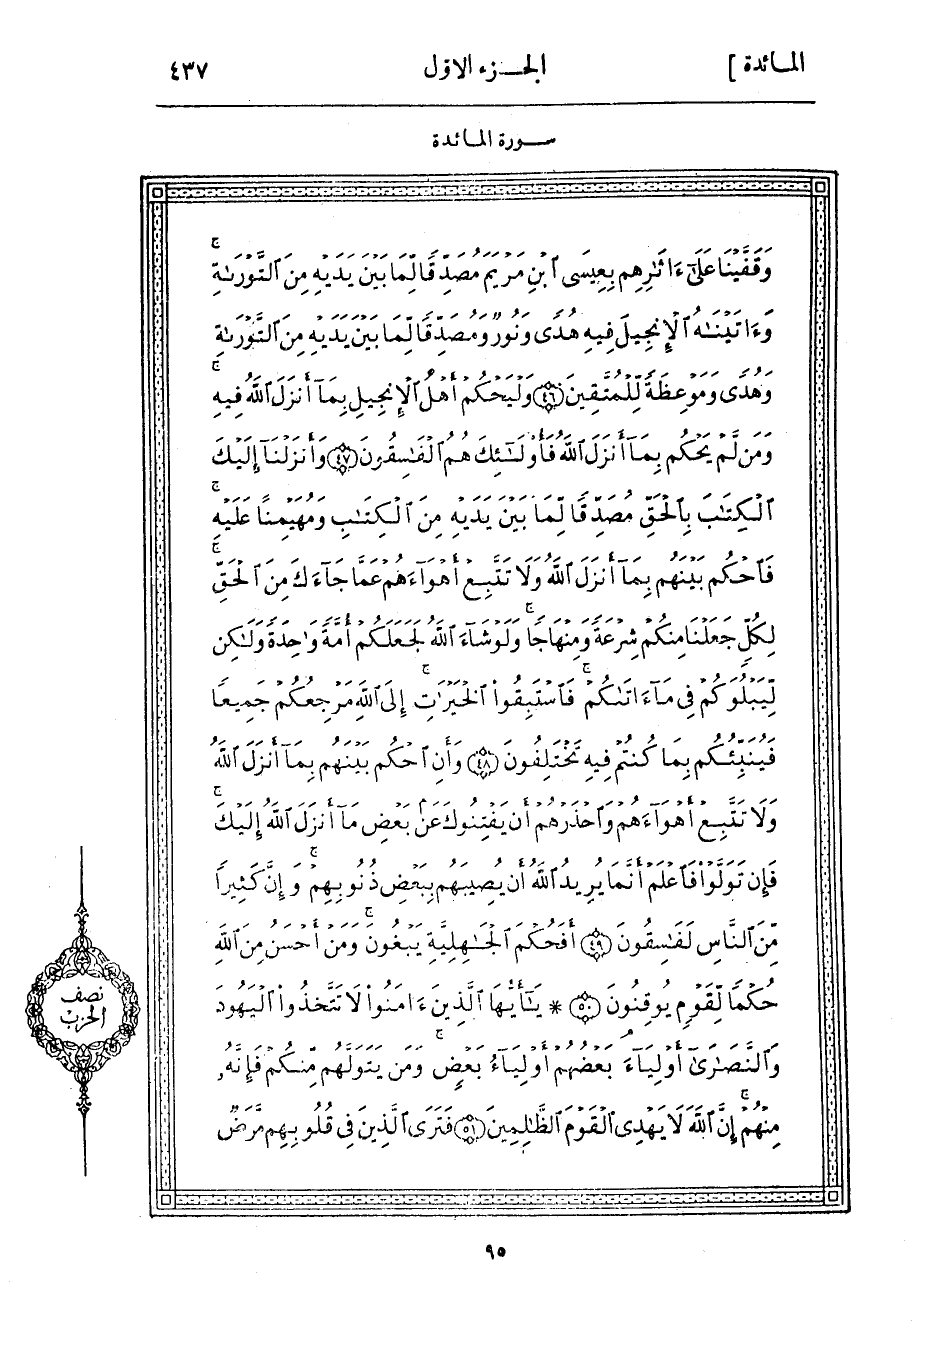 المائدة ] الجزء الاول ٤٣٧
سورة المائدة
وَقَفَّيْنَا عَلَىٰٓ ءَاثَٰرِهِم بِعِيسَى ٱبْنِ مَرْيَمَ مُصَدِّقًا لِّمَا بَيْنَ يَدَيْهِ مِنَ ٱلتَّوْرَىٰةِ ۚ
وَءَاتَيْنَٰهُ ٱلْإِنجِيلَ فِيهِ هُدًى وَنُورٌ وَمُصَدِّقًا لِّمَا بَيْنَ يَدَيْهِ مِنَ ٱلتَّوْرَىٰةِ
وَهُدًى وَمَوْعِظَةً لِّلْمُتَّقِينَ ٤٦ وَلْيَحْكُمْ أَهْلُ ٱلْإِنجِيلِ بِمَآ أَنزَلَ ٱللَّهُ فِيهِ ۚ
وَمَن لَّمْ يَحْكُم بِمَآ أَنزَلَ ٱللَّهُ فَأُو۟لَٰٓئِكَ هُمُ ٱلْفَٰسِقُونَ ٤٧ وَأَنزَلْنَآ إِلَيْكَ
ٱلْكِتَٰبَ بِٱلْحَقِّ مُصَدِّقًا لِّمَا بَيْنَ يَدَيْهِ مِنَ ٱلْكِتَٰبِ وَمُهَيْمِنًا عَلَيْهِ ۚ
فَٱحْكُم بَيْنَهُم بِمَآ أَنزَلَ ٱللَّهُ وَلَا تَتَّبِعْ أَهْوَآءَهُمْ عَمَّا جَآءَكَ مِنَ ٱلْحَقِّ ۚ
لِكُلٍّ جَعَلْنَا مِنكُمْ شِرْعَةً وَمِنْهَاجًا ۚ وَلَوْ شَآءَ ٱللَّهُ لَجَعَلَكُمْ أُمَّةً وَٰحِدَةً وَلَٰكِن
لِّيَبْلُوَكُمْ فِى مَآ ءَاتَىٰكُمْ ۚ فَٱسْتَبِقُوا۟ ٱلْخَيْرَٰتِ ۚ إِلَى ٱللَّهِ مَرْجِعُكُمْ جَمِيعًا
فَيُنَبِّئُكُم بِمَا كُنتُمْ فِيهِ تَخْتَلِفُونَ ٤٨ وَأَنِ ٱحْكُم بَيْنَهُم بِمَآ أَنزَلَ ٱللَّهُ
وَلَا تَتَّبِعْ أَهْوَآءَهُمْ وَٱحْذَرْهُمْ أَن يَفْتِنُوكَ عَنۢ بَعْضِ مَآ أَنزَلَ ٱللَّهُ إِلَيْكَ ۚ
فَإِن تَوَلَّوْا۟ فَٱعْلَمْ أَنَّمَا يُرِيدُ ٱللَّهُ أَن يُصِيبَهُم بِبَعْضِ ذُنُوبِهِمْ ۚ وَإِنَّ كَثِيرًا
مِّنَ ٱلنَّاسِ لَفَٰسِقُونَ ٤٩ أَفَحُكْمَ ٱلْجَٰهِلِيَّةِ يَبْغُونَ ۚ وَمَنْ أَحْسَنُ مِنَ ٱللَّهِ
حُكْمًا لِّقَوْمٍ يُوقِنُونَ ٥٠ * يَٰٓأَيُّهَا ٱلَّذِينَ ءَامَنُوا۟ لَا تَتَّخِذُوا۟ ٱلْيَهُودَ
وَٱلنَّصَٰرَىٰٓ أَوْلِيَآءَ ۘ بَعْضُهُمْ أَوْلِيَآءُ بَعْضٍ ۚ وَمَن يَتَوَلَّهُم مِّنكُمْ فَإِنَّهُۥ
مِنْهُمْ ۚ إِنَّ ٱللَّهَ لَا يَهْدِى ٱلْقَوْمَ ٱلظَّٰلِمِينَ ٥١ فَتَرَى ٱلَّذِينَ فِى قُلُوبِهِم مَّرَضٌ
نصف
الحزب
٩٥